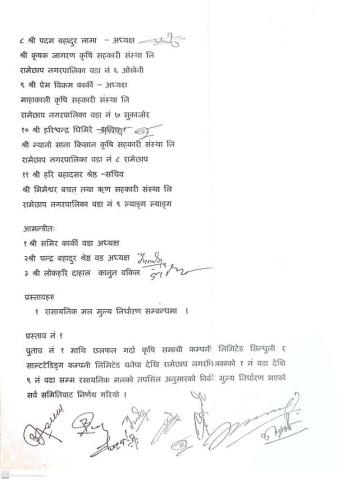 ८ श्री पदम बहादुर लामा - अध्यक्ष
श्री कृषक जागरण कृषि सहकारी संस्था लि
रामेछाप नगरपालिका वडा नं ६ ओखेनी
९ श्री प्रेम विक्रम कार्की - अध्यक्ष
माहाकाली कृषि सहकारी संस्था लि
रामेछाप नगरपालिका वडा नं ७ सुकाजोर
१० श्री हरिश्चन्द्र घिमिरे -
श्री न्यानो साना किसान कृषि सहकारी संस्था लि
रामेछाप नगरपालिका वडा नं ८ रामेछाप
११ श्री हरि बहादसर श्रेष्ठ -सचिव
श्री भिमेश्वर बचत तथा ऋण सहकारी संस्था लि
रामेछाप नगरपालिका वडा नं ९ ल्याङ्ग ल्याङ्ग
आमन्त्रीतः
१ श्री समिर कार्की वडा अध्यक्ष
२श्री चन्द्र बहादुर श्रेष्ठ वड अध्यक्ष
३ श्री लोकहरि दाहाल कानुन वकिल
प्रस्तावहरु
१ रासायनिक मल मुल्य निर्धारण सम्वन्धमा ।
प्रस्ताव नं १
प्रुताव नं १ माथि छलफल गर्दा कृषि समाग्री कम्पनी लिमिटेड सिन्धुली र
साल्टटेडिङ्ग कम्पनी लिमिटेड वनेपा देखि रामेछाप १ नं वडा देखि
९ नं वढा सम्म रसायनिक मलको तपसिल अनुसारको विकी मुल्य निर्धारण भएको
सर्व समितिवाट निर्णय गरियो ।